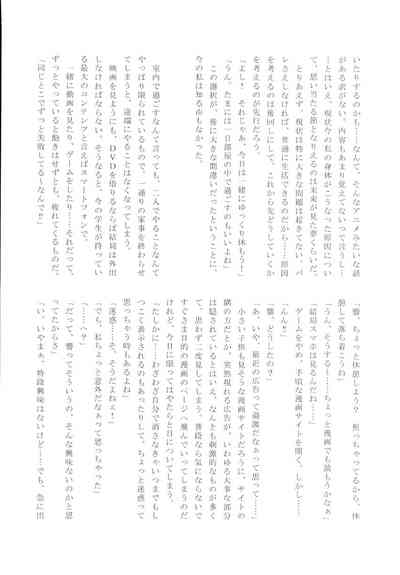 いたりするのかも……なんて、そんなアニメみたいな話
がある訳がない。内容もあまり覚えてないって言うし…
…とはいえ、現状今の私の身体がこうなった原因につい
て、思い当たる節となりえるのは未来が見た夢くらいだ。
とりあえず、現状は特に大きな問題は起きてない。バ
レさえしなければ、普通に生活できるのだから……原因
を考えるのは後回しにして、これから先どうしていくか
を考えるのが先行だろう。
「よし！　それじゃあ、今日は一緒にゆっくり休もう！」
「うん。たまには、一日部屋の中で過ごすのもいいよね」
この選択が、後に大きな間違いだったということに、
今の私は知る由もなかった。
室内で過ごすなんて言っても、二人でやることなんて
やっぱり限られているもので、一通りの家事を終わらせ
てしまうと、途端にやることはなくなってしまう。
映画を見ようにも、DVDを借りるならば結局は外出
しなければならない。そうなると、今の学生が持ってい
る最大のコンテンツと言えばスマートフォンで、
一緒に動画を見たり、ゲームをしたり……それだって、
ずっとやっていると飽きはせずとも、疲れてくるものだ。
「同じとこでずっと失敗してるーなんで!?」
「響、ちょっと休憩しよう？　熱っちゃってるから、休
憩して落ち着こうね」
「うん、そうする……ちょっと漫画でも読もうかなぁ」
「結局スマホは見るんだね……」
ゲームをやめ、手頃な漫画サイトを開く。しかし――
「んん!?」
「響、どうしたの？」
「あ、いや、最近の広告って過激だなぁって思って……」
小さい子供も見そうな漫画サイトだろうに、サイトの
隣の方だとか、突然現れる広告が、いわゆる大事な部分
は隠されているとはいえ、なんとも刺激的なものが多く
て、思わず二度見してしまう。普段なら気にならないで
すぐさま目的の漫画のページへ飛んでいってしまうのだ
けれど、今日に限ってはやたらと目についてしまう。
「たしかに……わざわざ自分で消さなきゃいつまでもし
つこく表示されるのもあったりして、ちょっと迷惑って
思っちゃう時もあるよね」
「迷惑……そ、そうだよねぇ！」
「でも、私ちょっと意外だなぁって思っちゃった」
「……へ？」
「だって、響ってそういうの、そんな興味ないのかと思
ってたからさ」
「い、いやぁ、特段興味はないけど……でも、急に出